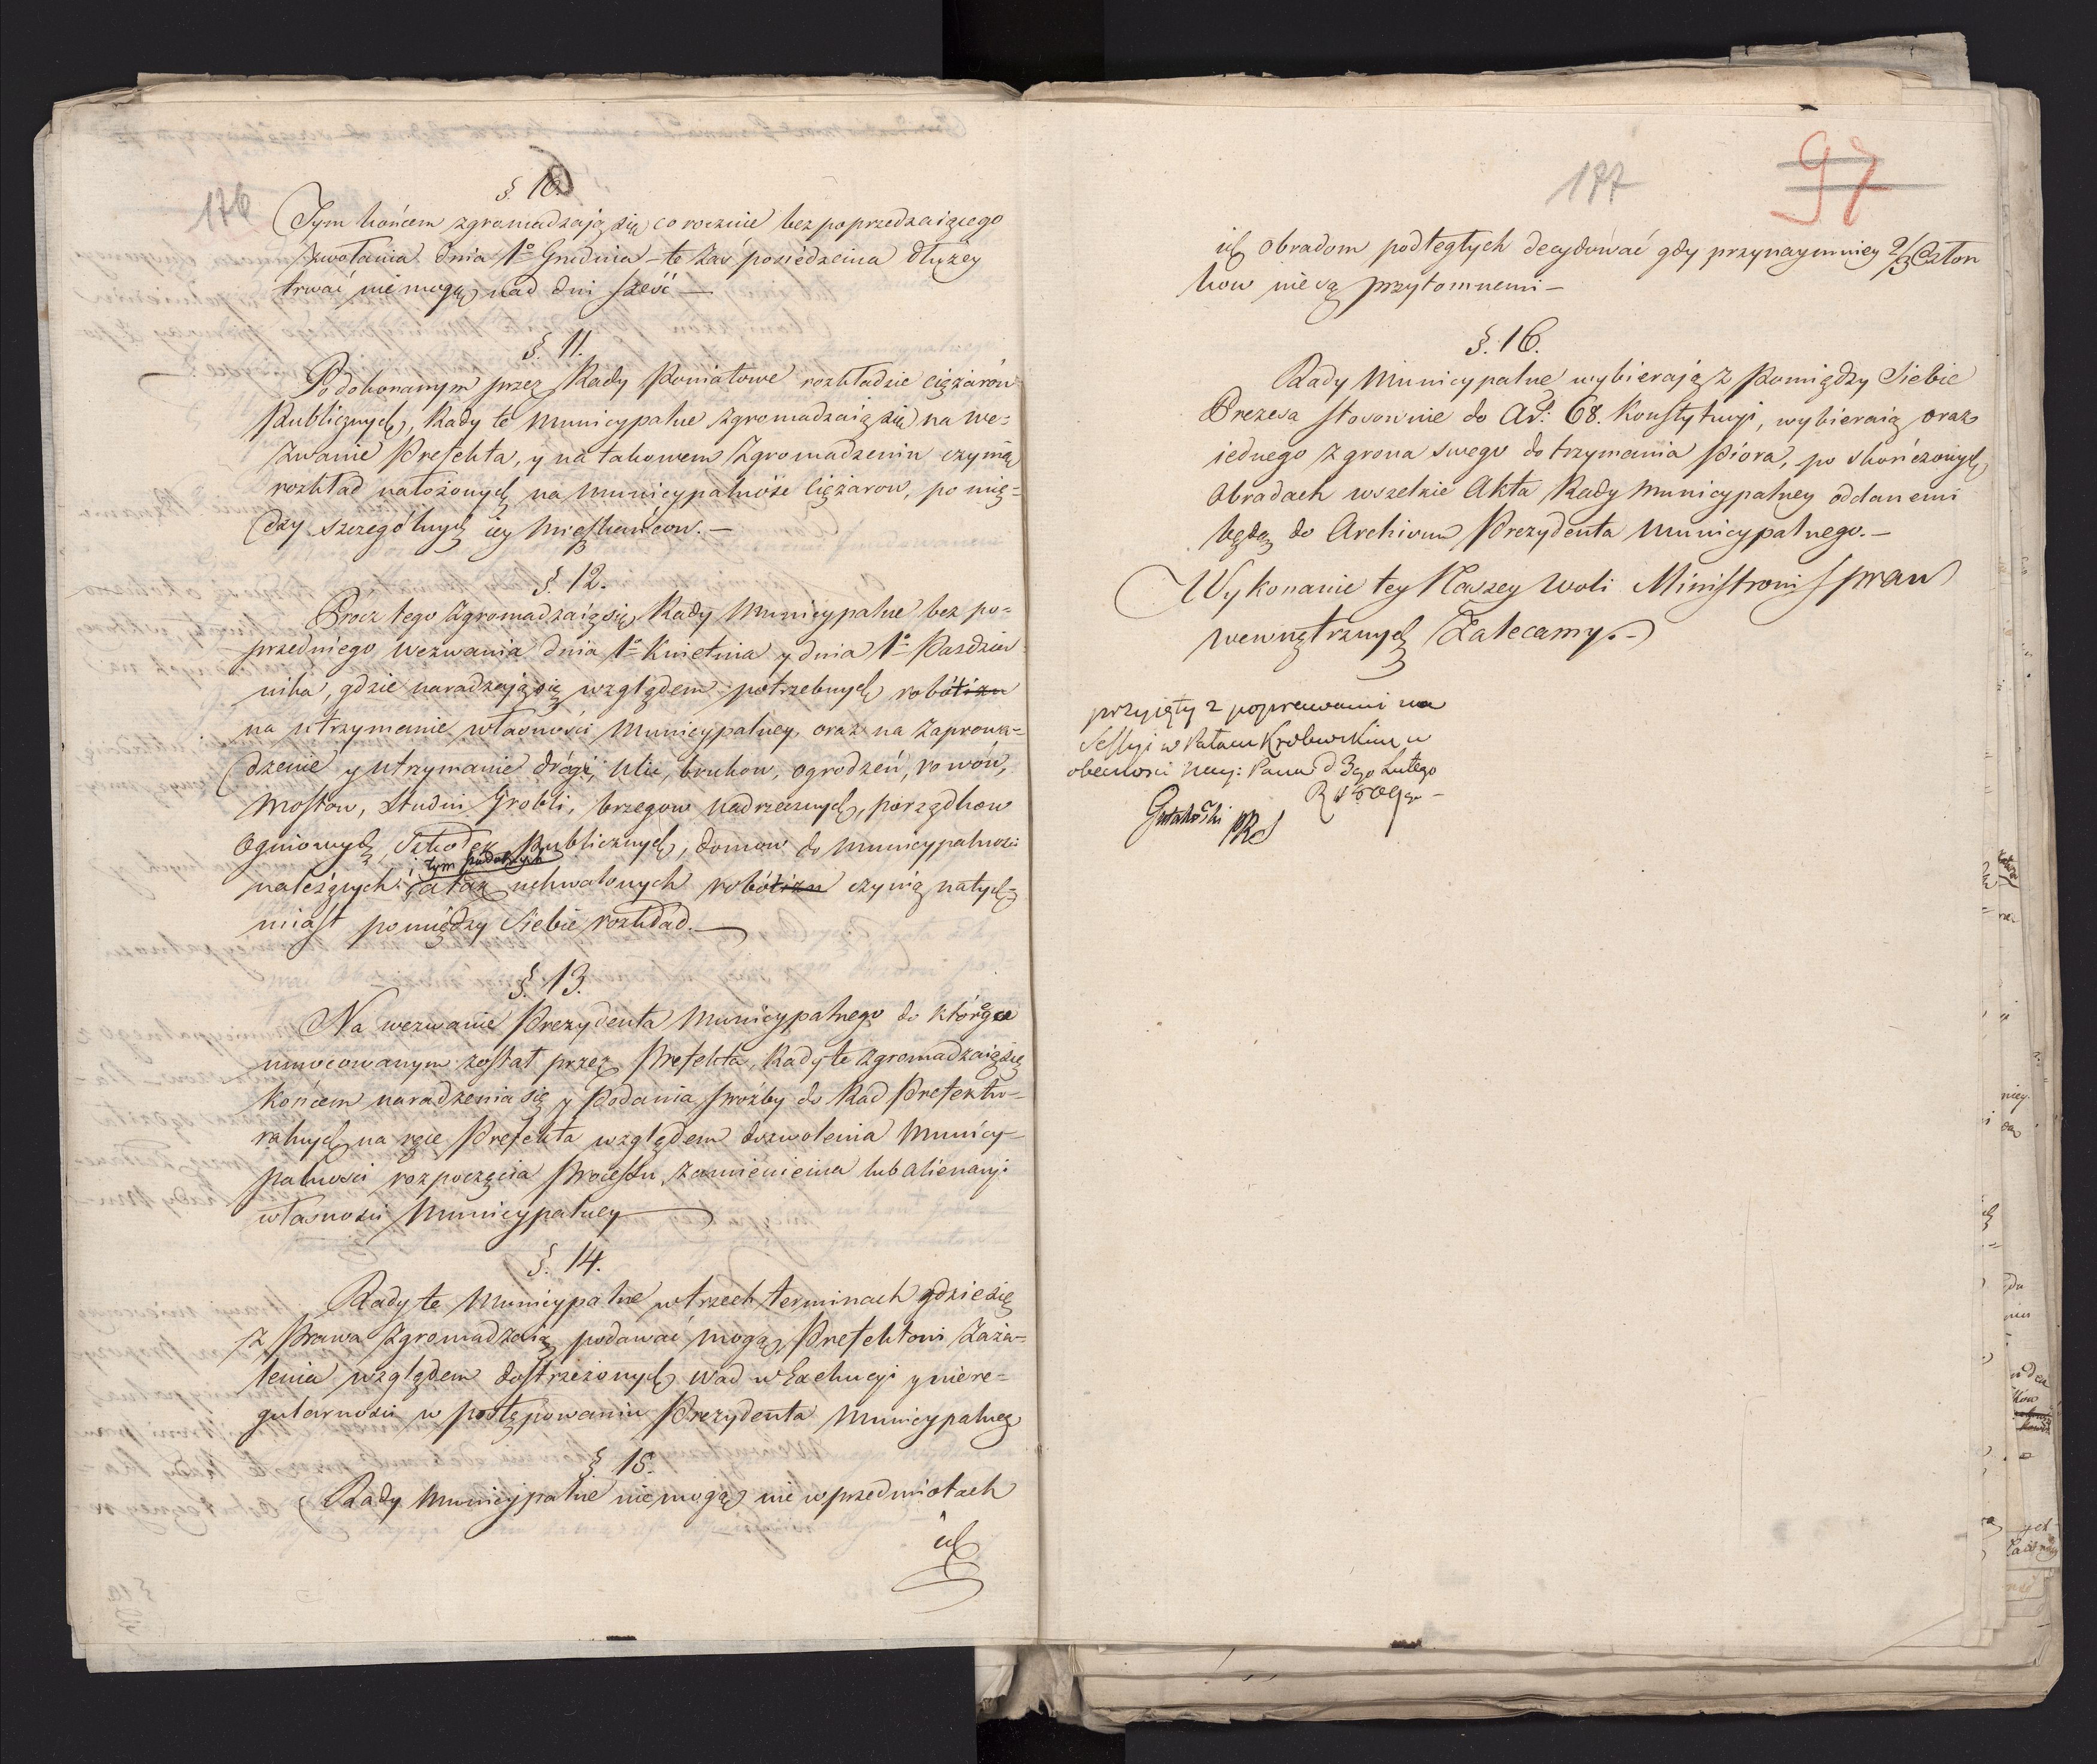 176
§ 10.
Tym końcem zgromadzają się co rocznie bez poprzedzaiącego
zwołania dnia 1º Grudnia – te zaś posiedzenia dłużey
trwać nie mogą nad dni sześć –
§. 11.
Po dokonanym przez Rady Powiatowe rozkładzie ciężarów
Publicznych, Rady te Municypalne zgromadzaią się na we=
zwanie Prefekta, y na takowem Zgromadzeniu czynią
rozkład nałożonych na Municypalność ciężarow, po mię=
dzy szczególnych iey Mieszkańcow. –
§. 12.
Prócz tego zgromadzaią się Rady Municypalne bez po=
przedniego wezwania dnia 1º Kwietnia y dnia 1º Pazdzier
nika, gdzie naradzają się względem potrzebnych robótizn
na utrzymanie własności Municypalney, oraz na zaprowa=
dzenie y utrzymanie drógi, ulic, brukow, ogrodzeń, rowów,
Mostow, Studni Grobli, brzegow nadrzecznych, porządkow
Ogniowych, Szkołek Publicznych, domow do Municypalności
i tym podobnych
należących. a tak uchwalonych robótizn czynią natych=
miast pomiędzy siebie rozkład. –
§. 13.
Na wezwanie Prezydenta Municypalnego do którego
umocowanym został przez Prefekta, Rady te zgromadzaią się
końcem naradzenia się y Podania prozby do Rad Prefekto=
ralnych na ręce Prefekta względem dozwolenia Municy=
palności rozpoczęcia Processu, zamienienia lub alienacyi
własności Municypalney
§. 14.
Rady te Municypalne w trzech terminach gdzie się
z Prawa zgromadzaią podawać mogą Prefektowi Zaża=
lenia względem dostrzeżonych wad w Exekucyi y niere=
gularności w postępowaniu Prezydenta Municypalneg
§. 15.
Rady Municypalne nie mogą nic w przedmiotach
ich
177
97
ich obradom podległych decydować gdy przynaymniey 2/3 Człon
kow nie są przytomnemi –
§. 16.
Rady Municypalne wybierają z Pomiędzy Siebie
Prezesa stosownie do Ar: 68. Konstytucyi, wybieraią oraz
iednego z grona swego do trzymania Pióra, po skończonych
Obradach wszelkie Akta Rady Municypalney oddanemi
będą do Archivum Prezydenta Municypalnego. –
Wykonanie tey Naszey Woli Ministrowi Spraw
wewnętrznych Zalecamy. –
przyięty z poprawami na
Sessyi w Pałacu Krolewskim w
obecnosci Nay: Pana d 3go Lutego
Gutakowski PRS